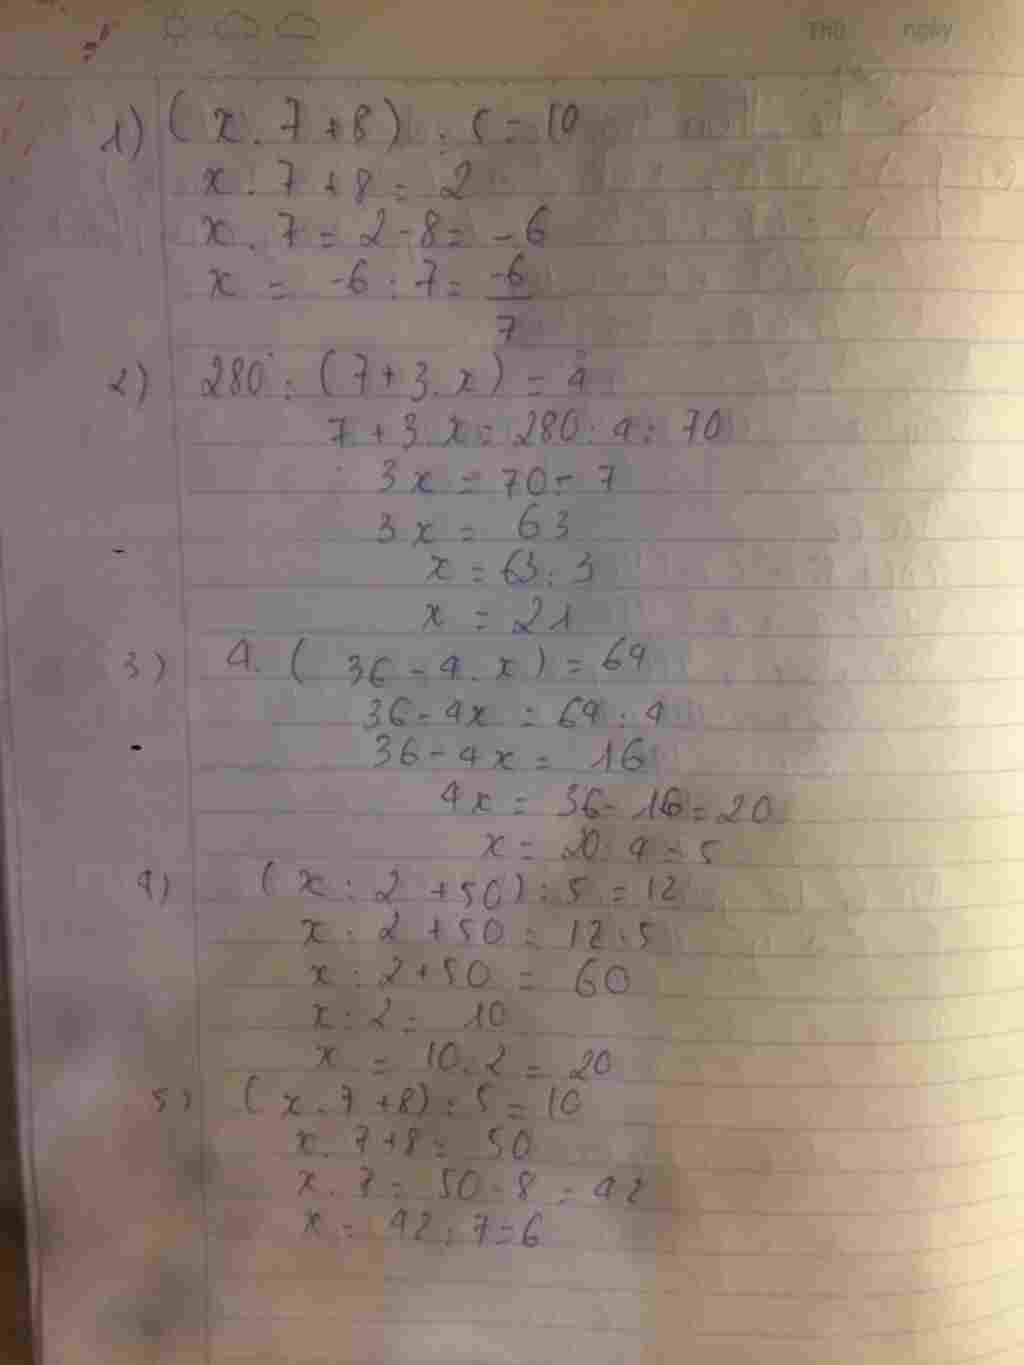 Thứ ngày
1) (x . 7 + 8) : 5 = 10
x . 7 + 8 = 2
x . 7 = 2 - 8 = -6
x = -6 : 7 = -6/7
2) 280 : (7 + 3. x) = 4
7 + 3 x = 280 : 4 = 70
3x = 70 - 7
3x = 63
x = 63 : 3
x = 21
3) 4. ( 36 - 4. x) = 64
36 - 4x = 64 : 4
36 - 4x = 16
4x = 36 - 16 = 20
x = 20 : 4 = 5
4) (x : 2 + 50) : 5 = 12
x : 2 + 50 = 12 . 5
x : 2 + 50 = 60
x : 2 = 10
x = 10 . 2 = 20
5) (x . 7 + 8) : 5 = 10
x . 7 + 8 = 50
x . 7 = 50 - 8 = 42
x = 42 : 7 = 6